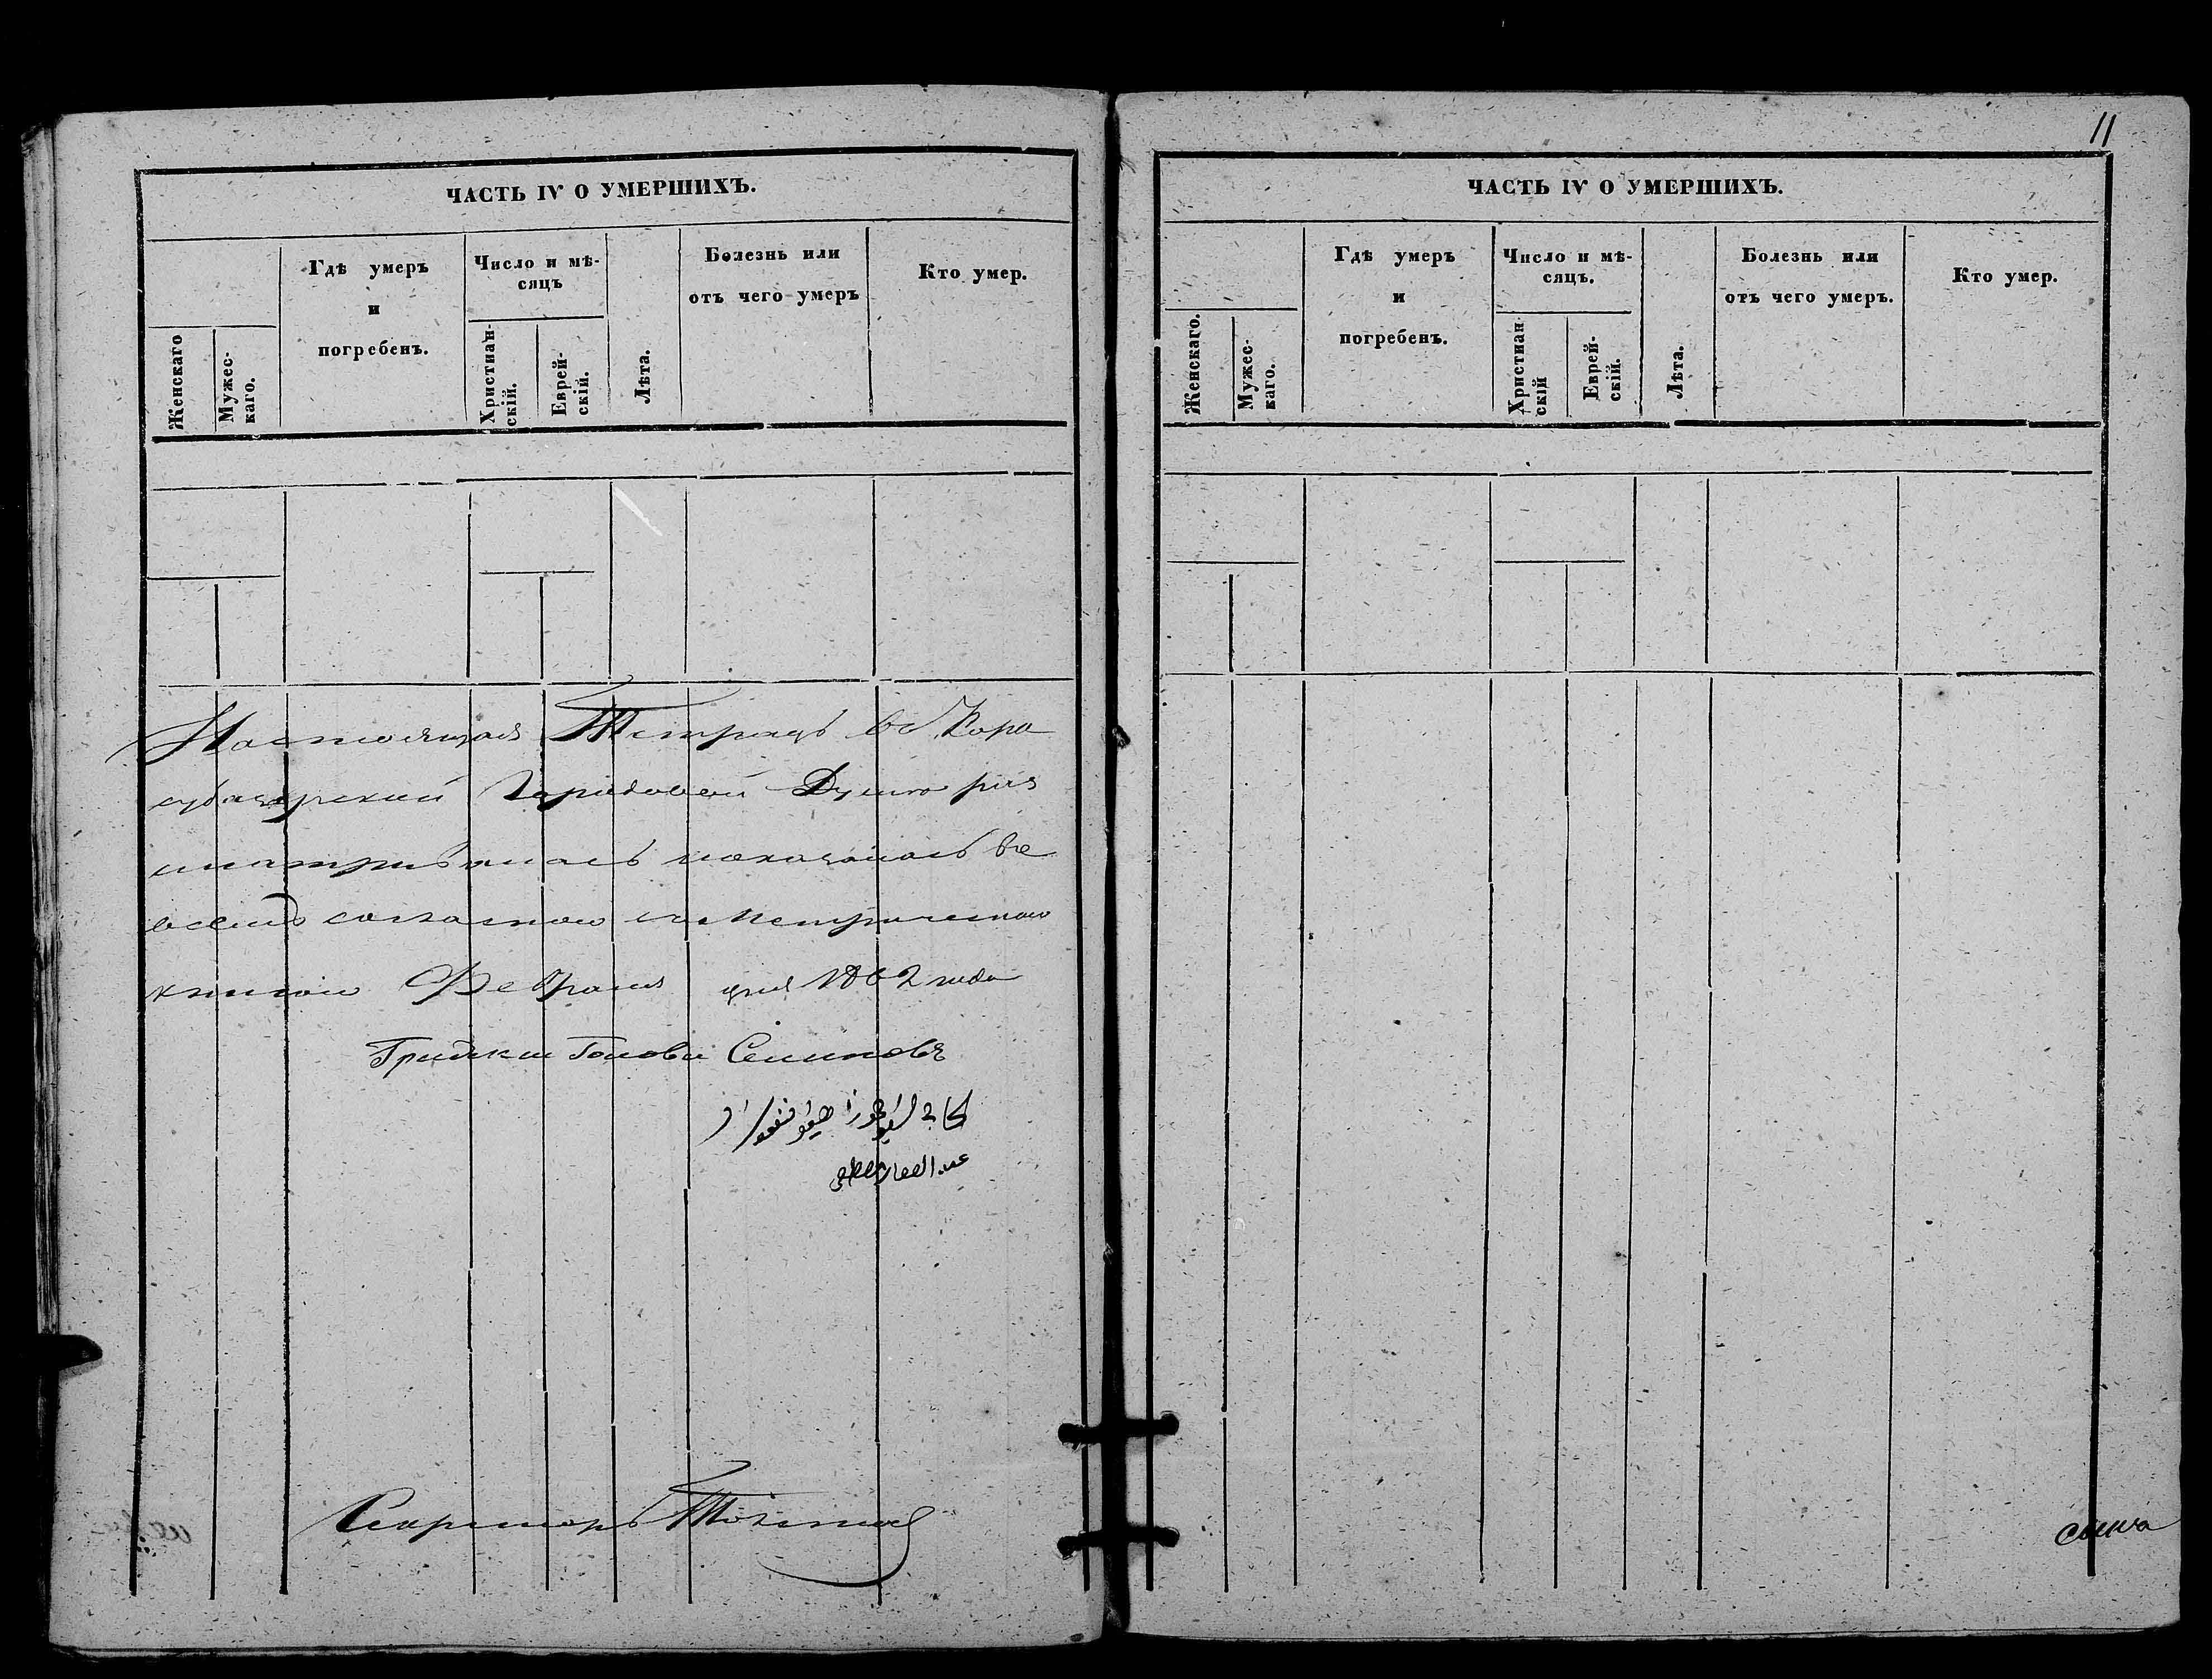 ЧАСТЬ IV О УМЕРШИХЪ.
Женскаго
Мужес-
каго.
Гдѣ умеръ
и
погребенъ.
Число и мѣ-
сяцъ
Христиан-
скій.
Еврей-
скій.
Лѣта.
Болезнь или
отъ чего умеръ
Кто умер.
Настоящая Тетрадь въ Кара
субазарской Городовой Думѣ раз
сматривалась и оказалась во
всемъ согласною съ Метрическою
книгою Февраля дня 1862 года
Градскій Голова Семиновъ
Секретарь
11
ЧАСТЬ IV О УМЕРШИХЪ.
Женскаго.
Мужес-
каго.
Гдѣ умеръ
и
погребенъ.
Число и мѣ-
сяцъ.
Христиан-
скій
Еврей-
скій.
Лѣта.
Болезнь или
отъ чего умеръ.
Кто умер.